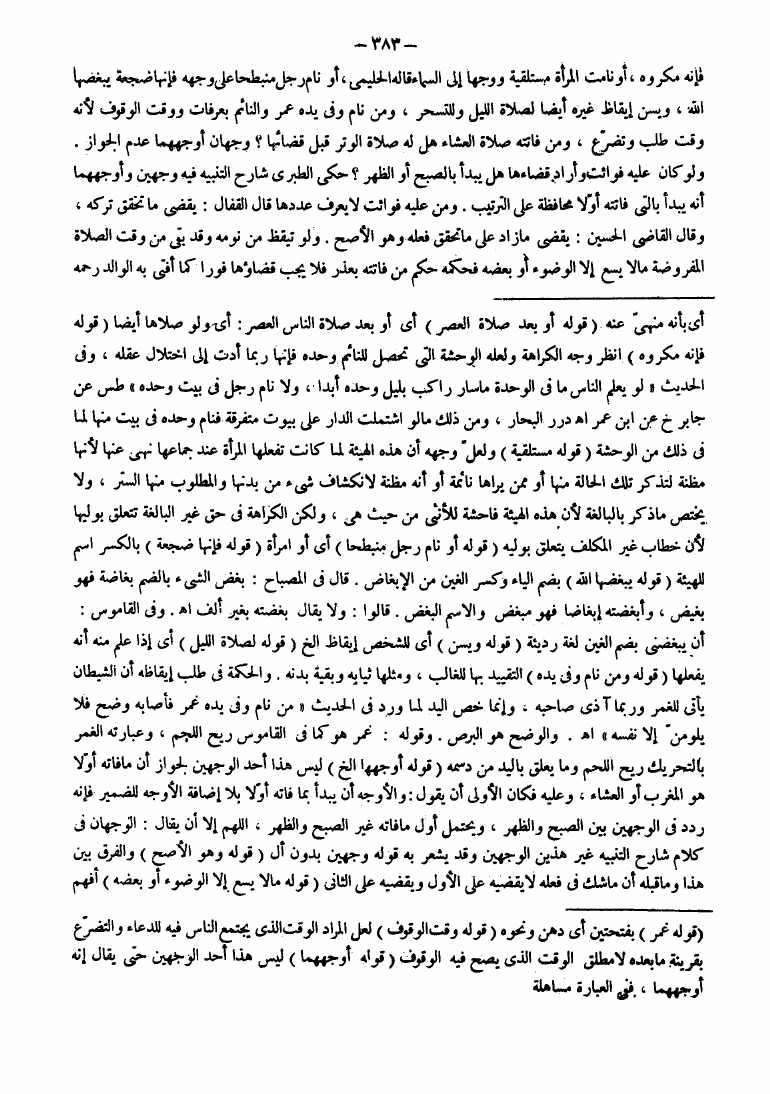 – ٣٨٣ –
فإنه مكروه ، أو نامت المرأة مستلقية ووجها إلى السماء قاله الحليمى ، أو نام رجل منبطحا على وجهه فإنها ضجعة يبغضها
الله ، ويسن إيقاظ غيره أيضا لصلاة الليل وللتسحر ، ومن نام وفى يده غمر والنائم بعرفات ووقت الوقوف لأنه
وقت طلب وتضرّع ، ومن فاتته صلاة العشاء هل له صلاة الوتر قبل قضائها ؟ وجهان أوجههما عدم الجواز .
ولو كان عليه فوائت وأراد قضاءها هل يبدأ بالصبح أو الظهر ؟ حكى الطبرى شارح التنبيه فيه وجهين وأوجههما
أنه يبدأ بالتى فاتته أوّلا محافظة على الترتيب . ومن عليه فوائت لايعرف عددها قال القفال : يقضى ماتحقق تركه ،
وقال القاضى الحسين : يقضى مازاد على ماتحقق فعله وهو الأصح . ولو تيقظ من نومه وقد بقى من وقت الصلاة
المفروضة مالا يسع إلا الوضوء أو بعضه فحكمه حكم من فاتته بعذر فلا يجب قضاؤها فورا كما أفتى به الوالد رحمه
أى بأنه منهىّ عنه ( قوله أو بعد صلاة العصر ) أى أو بعد صلاة الناس العصر : أى ولو صلاها أيضا ( قوله
فإنه مكروه ) انظر وجه الكراهة ولعله الوحشة التى تحصل للنائم وحده فإنها ربما أدت إلى اختلال عقله ، وفى
الحديث « لو يعلم الناس ما فى الوحدة ماسار راكب بليل وحده أبدا ، ولا نام رجل فى بيت وحده » طس عن
جابر خ عن ابن عمر اه درر البحار ، ومن ذلك مالو اشتملت الدار على بيوت متفرقة فنام وحده فى بيت منها لما
فى ذلك من الوحشة ( قوله مستلقية ) ولعلّ وجهه أن هذه الهيئة لما كانت تفعلها المرأة عند جماعها نهى عنها لأنها
مظنة لتذكر تلك الحالة منها أو ممن يراها نائمة أو أنه مظنة لانكشاف شىء من بدنها والمطلوب منها الستر ، ولا
يختص ماذكر بالبالغة لأن هذه الهيئة فاحشة للأنثى من حيث هى ، ولكن الكراهة فى حق غير البالغة تتعلق بوليها
لأن خطاب غير المكلف يتعلق بوليه ( قوله أو نام رجل منبطحا ) أى أو امرأة ( قوله فإنها ضجعة ) بالكسر اسم
للهيئة ( قوله يبغضها الله ) بضم الياء وكسر الغين من الإبغاض . قال فى المصباح : بغض الشىء بالضم بغاضة فهو
بغيض ، وأبغضته إبغاضا فهو مبغض والاسم البغض . قالوا : ولا يقال بغضته بغير ألف اه . وفى القاموس :
أن يبغضنى بضم الغين لغة رديئة ( قوله ويسن ) أى للشخص إيقاظ الخ ( قوله لصلاة الليل ) أى إذا علم منه أنه
يفعلها ( قوله ومن نام وفى يده ) التقييد بها للغالب ، ومثلها ثيابه وبقية بدنه . والحكمة فى طلب إيقاظه أن الشيطان
يأتى للغمر وربما آذى صاحبه ، وإنما خص اليد لما ورد فى الحديث « من نام وفى يده غمر فأصابه وضح فلا
يلومنّ إلا نفسه » اه . والوضح هو البرص . وقوله : غمر هو كما فى القاموس ريح اللحم ، وعبارته الغمر
بالتحريك ريح اللحم وما يعلق باليد من دسمه ( قوله أوجهها الخ ) ليس هذا أحد الوجهين لجواز أن مافاته أوّلا
هو المغرب أو العشاء ، وعليه فكان الأولى أن يقول : والأوجه أن يبدأ بما فاته أوّلا بلا إضافة الأوجه للضمير فإنه
ردد فى الوجهين بين الصبح والظهر ، ويحتمل أول مافاته غير الصبح والظهر ، اللهم إلا أن يقال : الوجهان فى
كلام شارح التنبيه غير هذين الوجهين وقد يشعر به قوله وجهين بدون أل ( قوله وهو الأصح ) والفرق بين
هذا وماقبله أن ماشك فى فعله لايقضيه على الأول ويقضيه على الثانى ( قوله مالا يسع إلا الوضوء أو بعضه ) أفهم
(قوله غمر ) بفتحتين أى دهن ونحوه ( قوله وقت الوقوف ) لعل المراد الوقت الذى يجتمع الناس فيه للدعاء والتضرّع
بقرينة مابعده لامطلق الوقت الذى يصح فيه الوقوف ( قوله أوجههما ) ليس هذا أحد الوجهين حتى يقال إنه
أوجههما ، ففى العبارة مساهلة